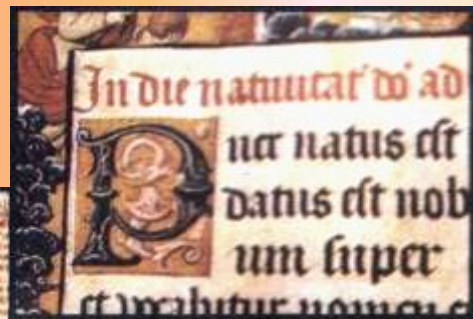 In die natiuitat' do' ad
Puer natus est
datus est nob
um super
et vocabitur nomen e